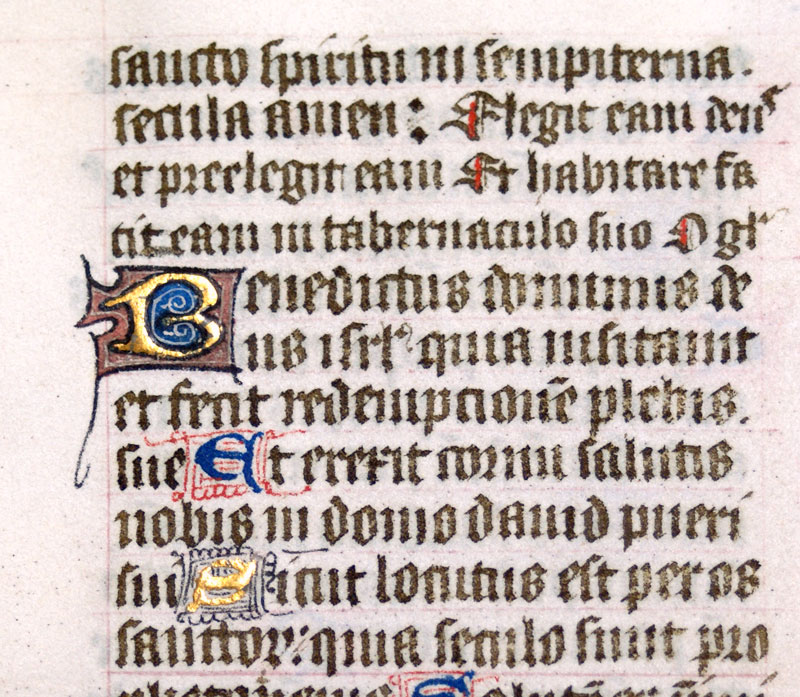 sancto spiritu in sempiterna.
secula amen: Elegit eam deus
et preelegit eam Et habitare fa
cit eam in tabernaculo suo
Benedictus dominus de
us isrl' quia visitavit
et fecit redempcionē plebis.
sue Et erexit cornu salutis
nobis in domo david pueri
sui Sicut locutus est per os
sanctorꝝ: qui a seculo sunt pro